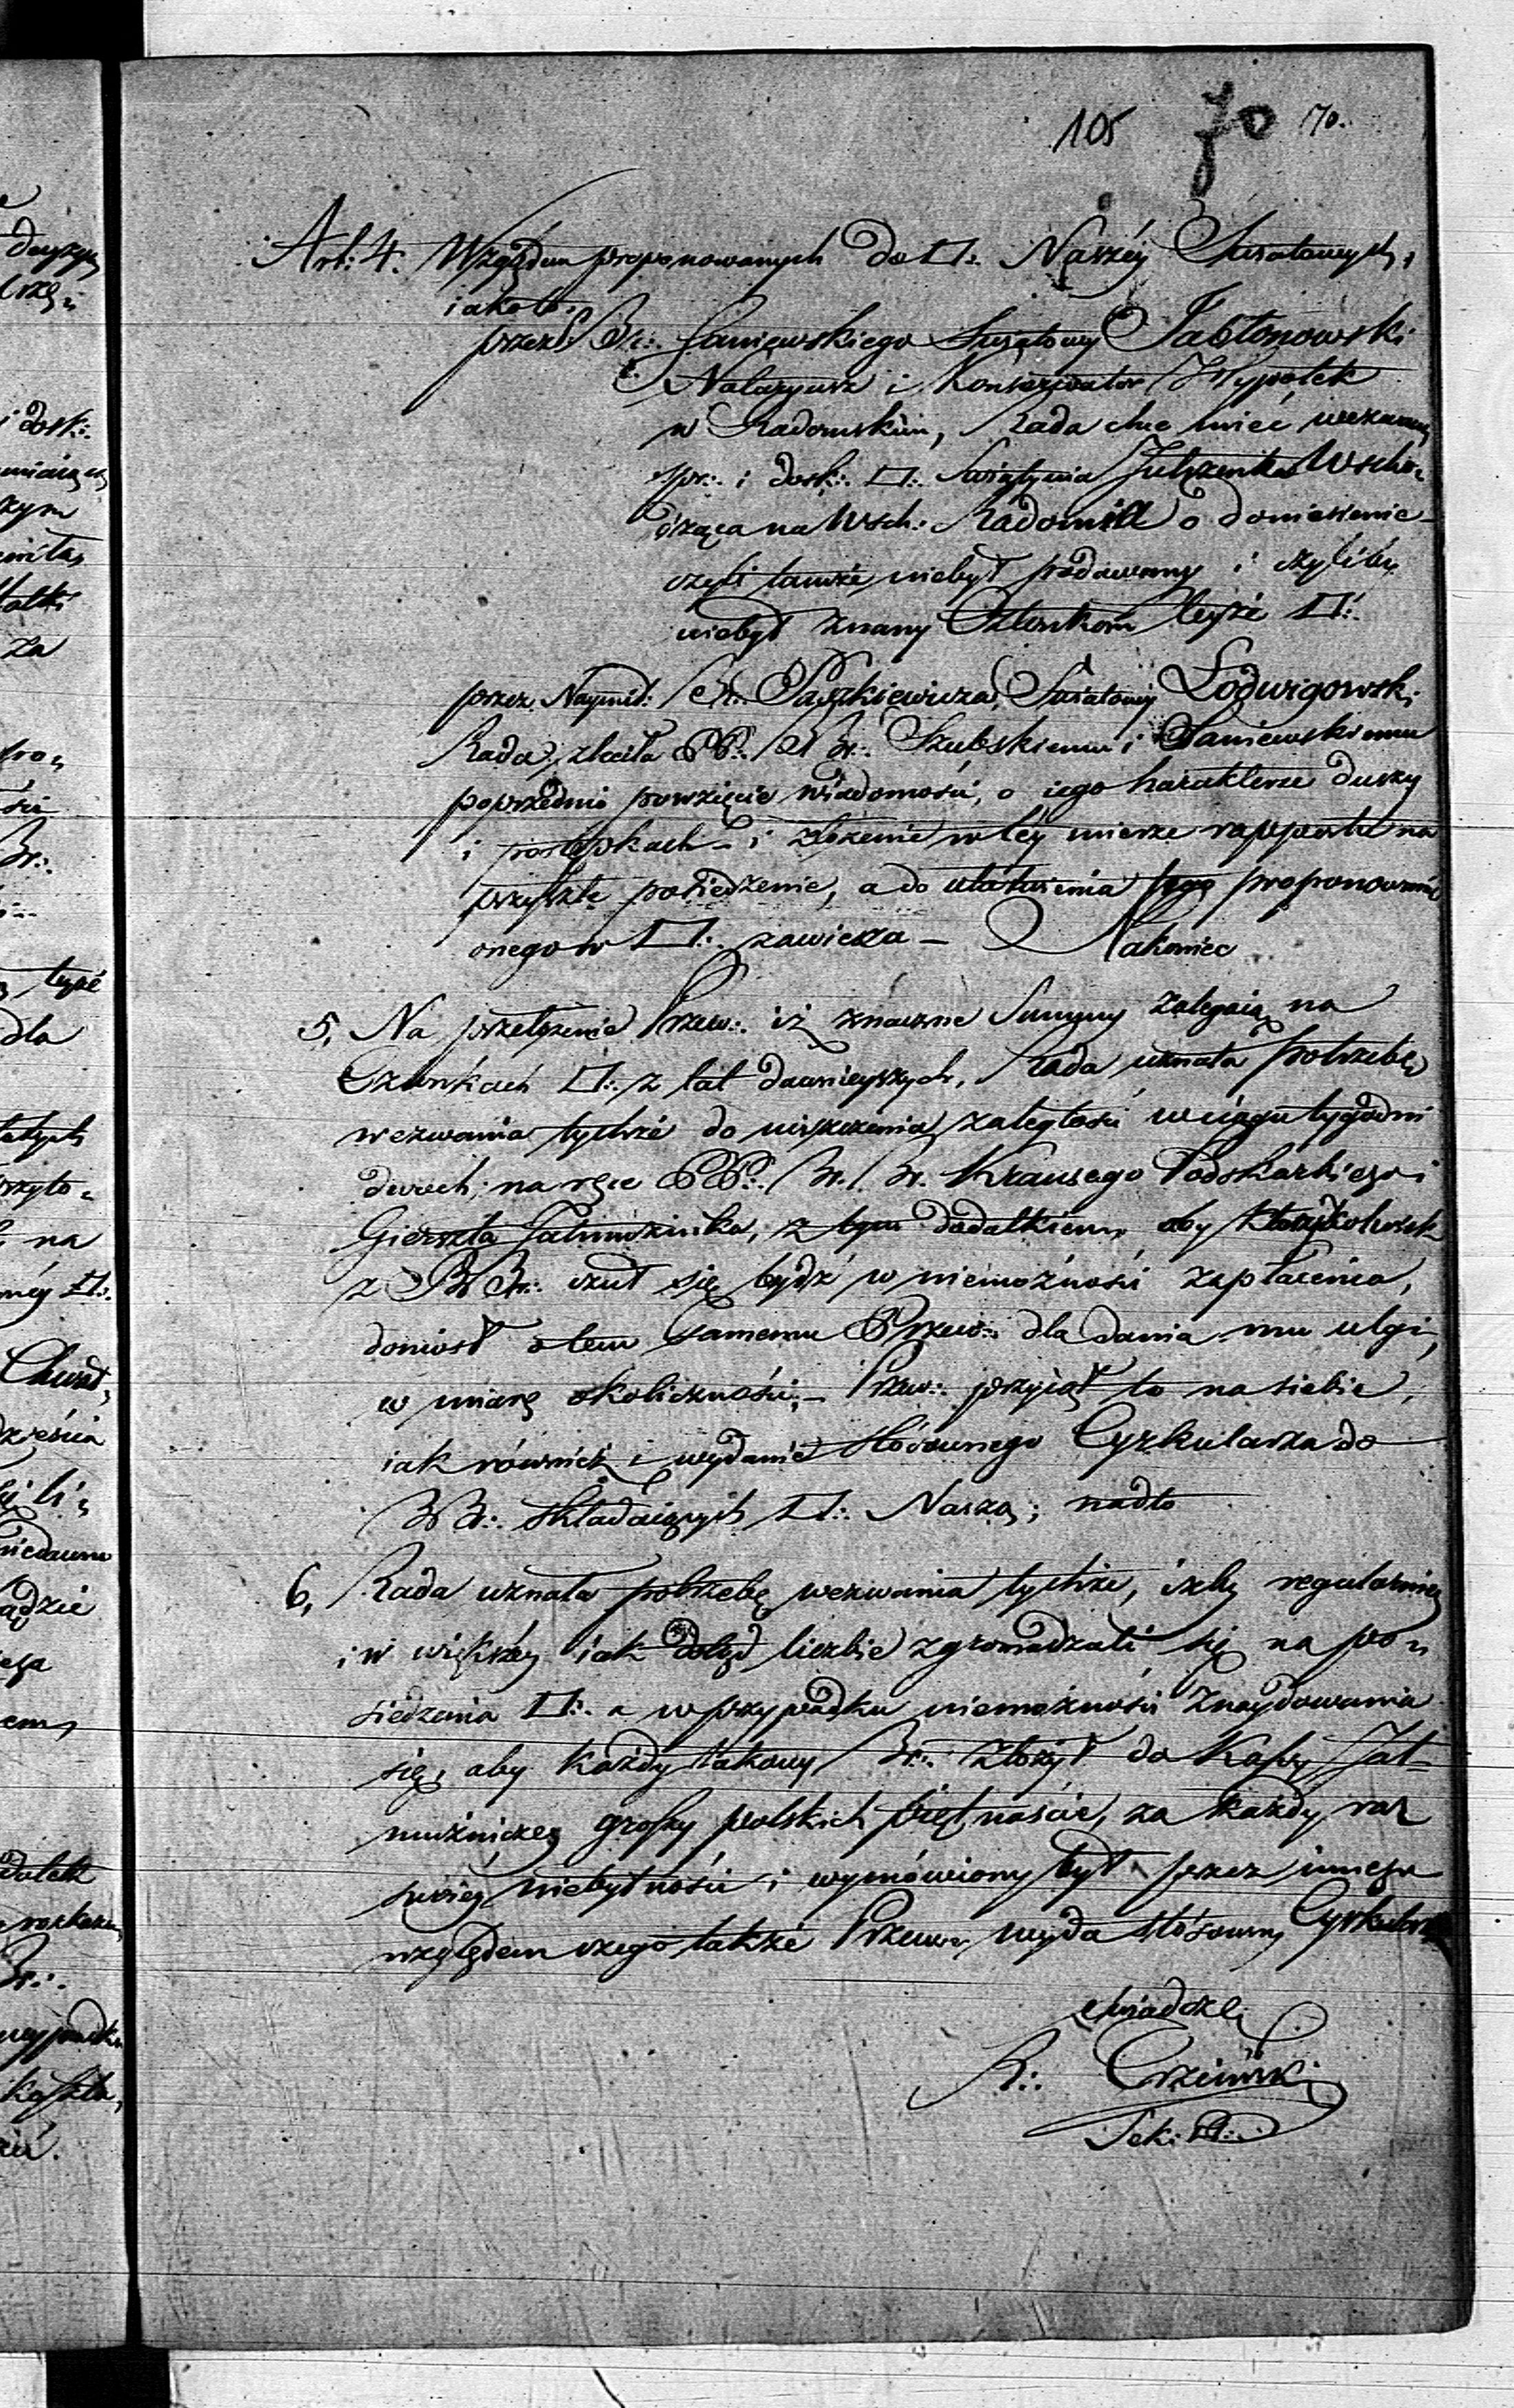 105 70 70.
Art: 4. Względem proponowanych do □:. Naszéy Swiatowych,
iakoto,
przez Br:. Saniewskiego Swiatowy Jabłonowski
Nataryusz i Konserwator Hypotek
w Radomskim, Rada chce mieć wezwaną
spr:. i dosk:. □:. Swiątynia Jutrzenka Wscho„
dząca na Wsch:. Radomia o doniesienie
czyli tamże niebył podawany i czyliby
niebył znany Członkom teyże □:.
przez Nayprzew: Br:. Paszkiewicza, Swiatowy Lodwigowski
Rada zleciła PP:. Br Br:. Szubskiemu i Saniewskiemu
poprzednie powzięcie wiadomości, o iego harakterze duszy
i postępkach – i złożenie w téy mierze rapportu na
przyszłe posiedzenie, a do ułatwienia tego proponowanie
onego w □:. zawiesza – Nakoniec
5, Na przełożenie Przew:. iż znaczne Summy zalegaią na
Członkach □:. z lat dawnieyszych, Rada uznała potrzebę
wezwania tychże do uiszczenia zaległości w ciągu tygodni
dwóch, na ręce PP:. Br. Br. Krausego Podskarbiego i
Gierszta Jałmużnika, z tym dodatkiem, aby któryKolwiek
z Br Br:. czuł się bydź w niemożności zapłacenia,
doniosł o tem samemu Przew:. dla dania mu ulgi,
w miarę okoliczności, – Przew:. przyiął to na siebie,
iak również i wydanie stósownego Cyrkularza do
Br Br:. składaiących □:. Naszą; nadto
6, Rada uznała potrzebę wezwania tychże, iżby regularniey
i w większey iak dotąd liczbie zgromadzali się na po„
siedzenia □:. a w przypadku niemożności znaydowania
się, aby każdy takowy Br:. złożył do Kassy Jał„
mużniczey groszy polskich piętnaście, za każdy raz
swiey niebytności i wymówiony był przez innego
względem czego także Przew:. wyda stósowny Cyrkularz
Swiadczę
Br:. Grzimski
Sek: □:.